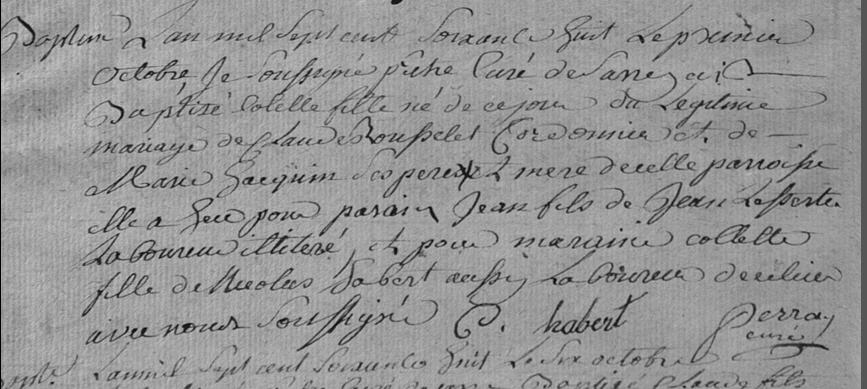 Baptem L'an mil Sept cent Soixante huit Le premier
Octobre Je Soussigné prêtre Curé de ai
Baptisé Colette fille né de ce jour du Legitime
mariage de Claude Rousselet Cordonnier et de
Marie Jacquin Ses pere et mere de celle parroisse
elle a Heu pour parain Jean fils de Jean
Laboureur illiteré, et pour maraine collette
fille de Nicolas habert aussi Laboureur de ce lieu
avec nous Soussigné C. habert Perray
curé
L'an mil Sept cent Soixante huit Le Six octobre